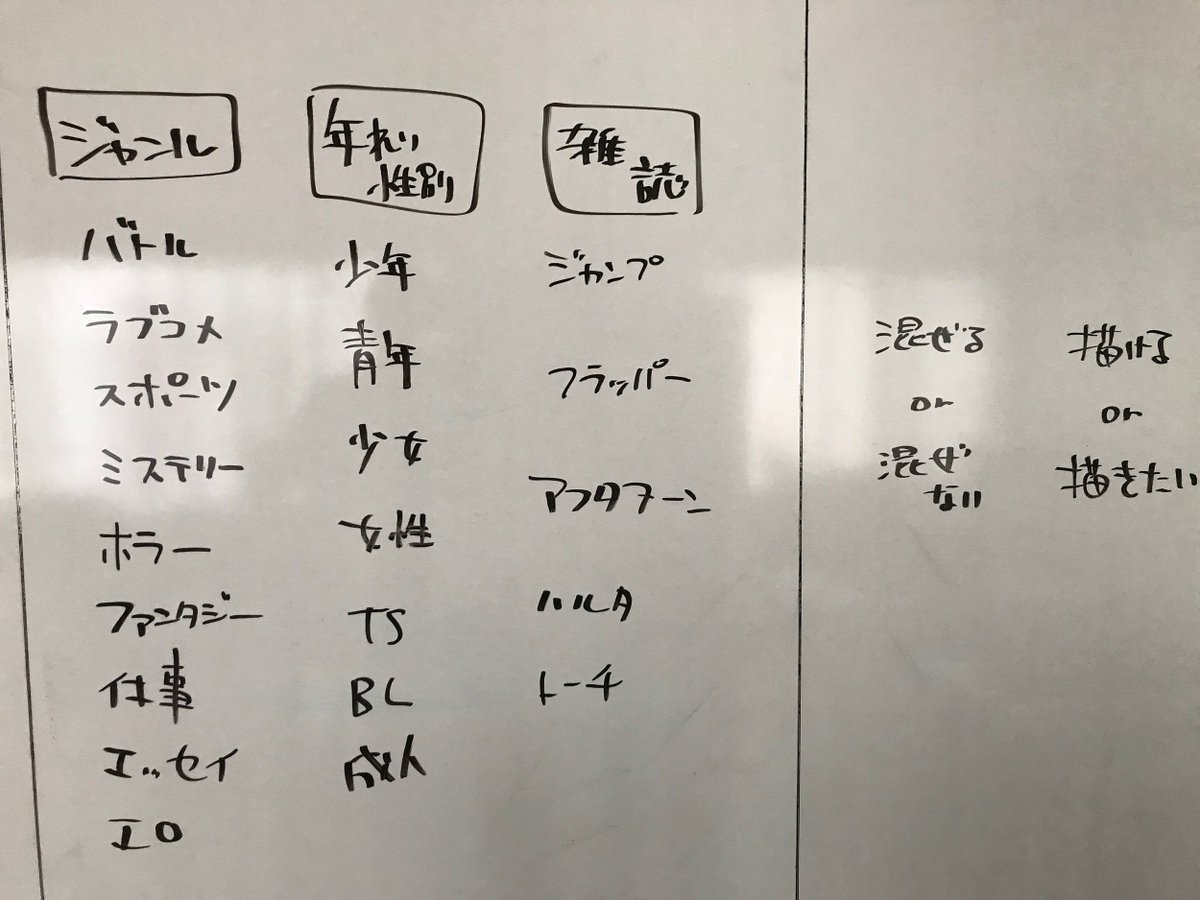 ジャンル
バトル
ラブコメ
スポーツ
ミステリー
ホラー
ファンタジー
仕事
エッセイ
エロ
年れい
性別
少年
青年
少女
女性
TS
BL
成人
雑
誌
ジャンプ
フラッパー
アフタヌーン
ハルタ
トーチ
混ぜる
or
混ぜ
ない
描ける
or
描きたい